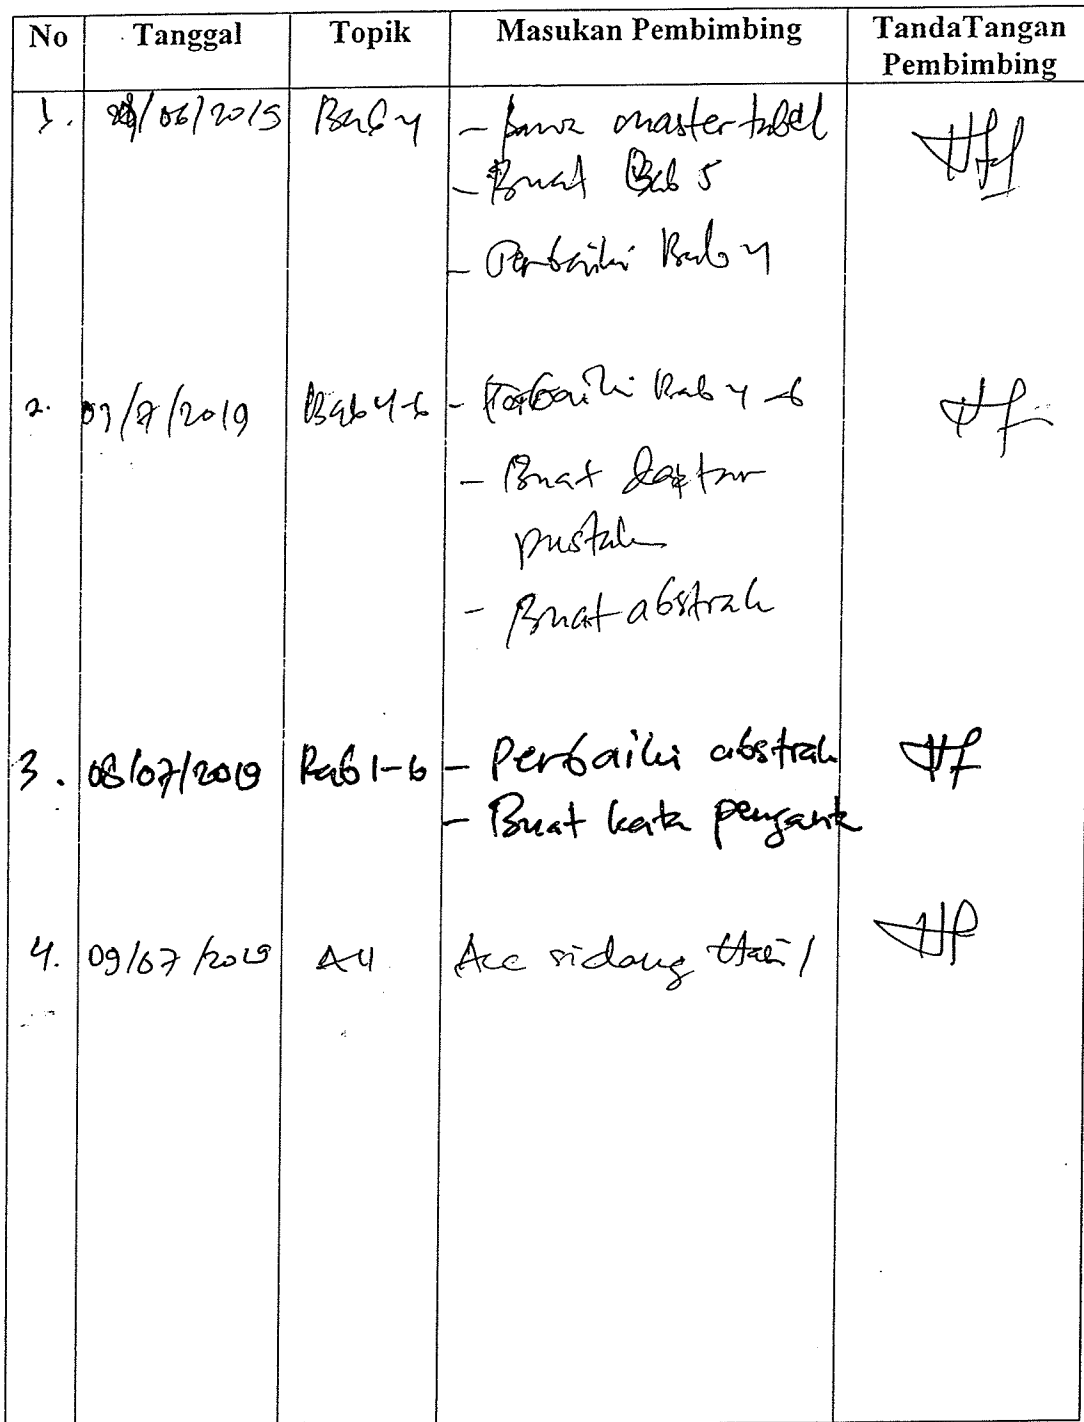 No Tanggal Topik Masukan Pembimbing TandaTangan Pembimbing
1. /06/2019 Bab 4 - bawa master tabel
- Buat Bab 5
- Perbaiki Bab 4
2. 03/7/2019 Bab 4-6 - Perbaiki Bab 4-6
- Buat daftar
pustaka
- Buat abstrak
3. 08/07/2019 Bab 1-6 - Perbaiki abstrak
- Buat kata pengantar
4. 09/07/2019 All Acc sidang Hasil